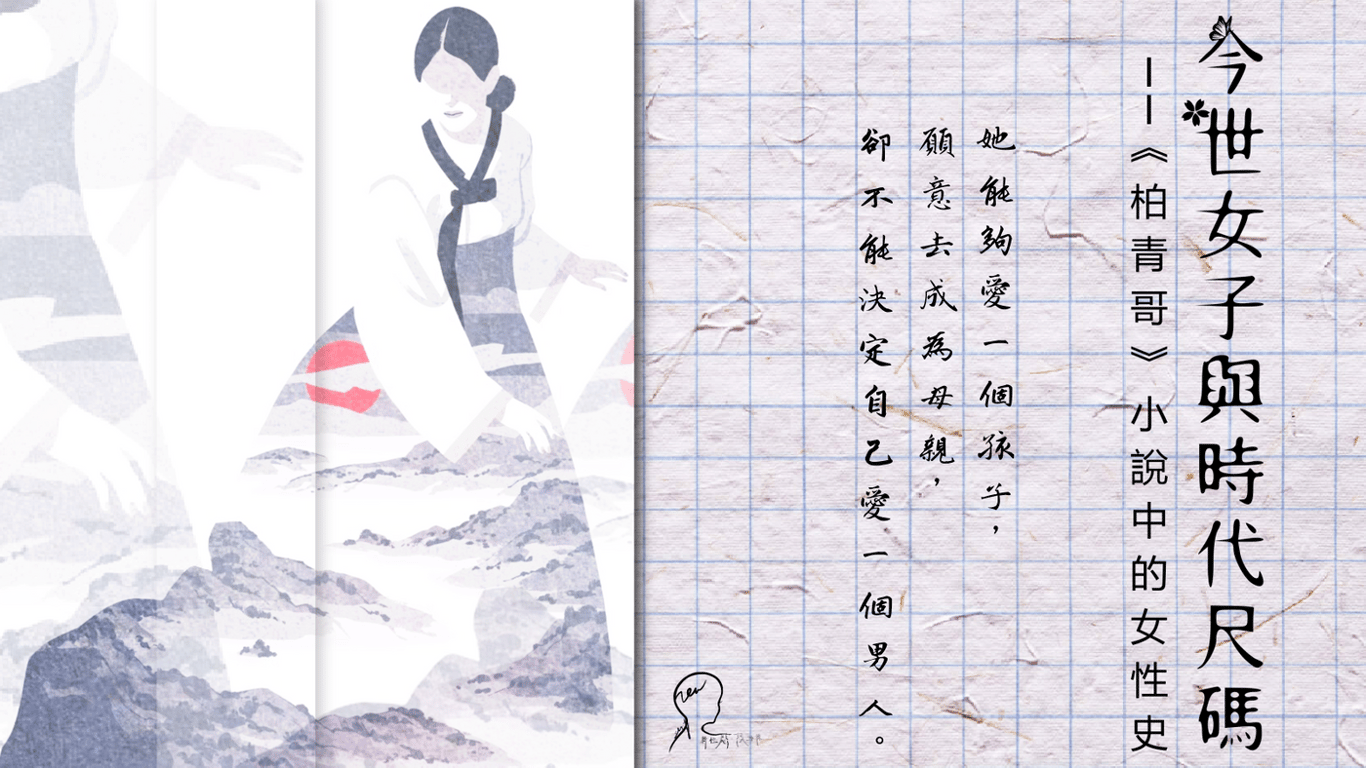 今世女子與時代尺碼
——《柏青哥》小說中的女性史
她能夠愛一個孩子，
願意去成為母親，
卻不能決定自己愛一個男人。